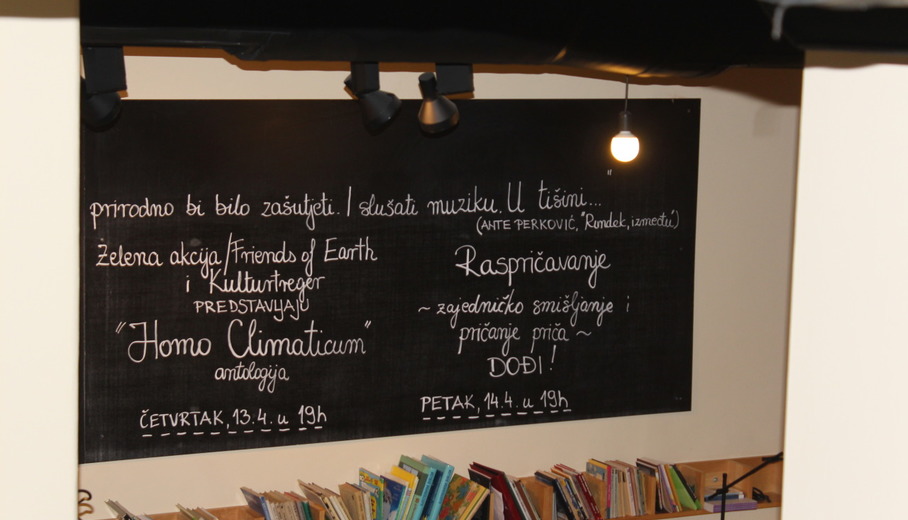 prirodno bi bilo zašutjeti. / slušati muziku. U tišini...
(ANTE PERKOVIĆ, "Rundek, između")
Zelena akcija/Friends of Earth
i Kulturtreger
PREDSTAVLJAJU
"Homo Climaticum"
antologija
ČETVRTAK, 13.4. u 19h
Raspričavanje
~ zajedničko smišljanje i
pričanje priča ~
DOĐI!
PETAK, 14.4. u 19h